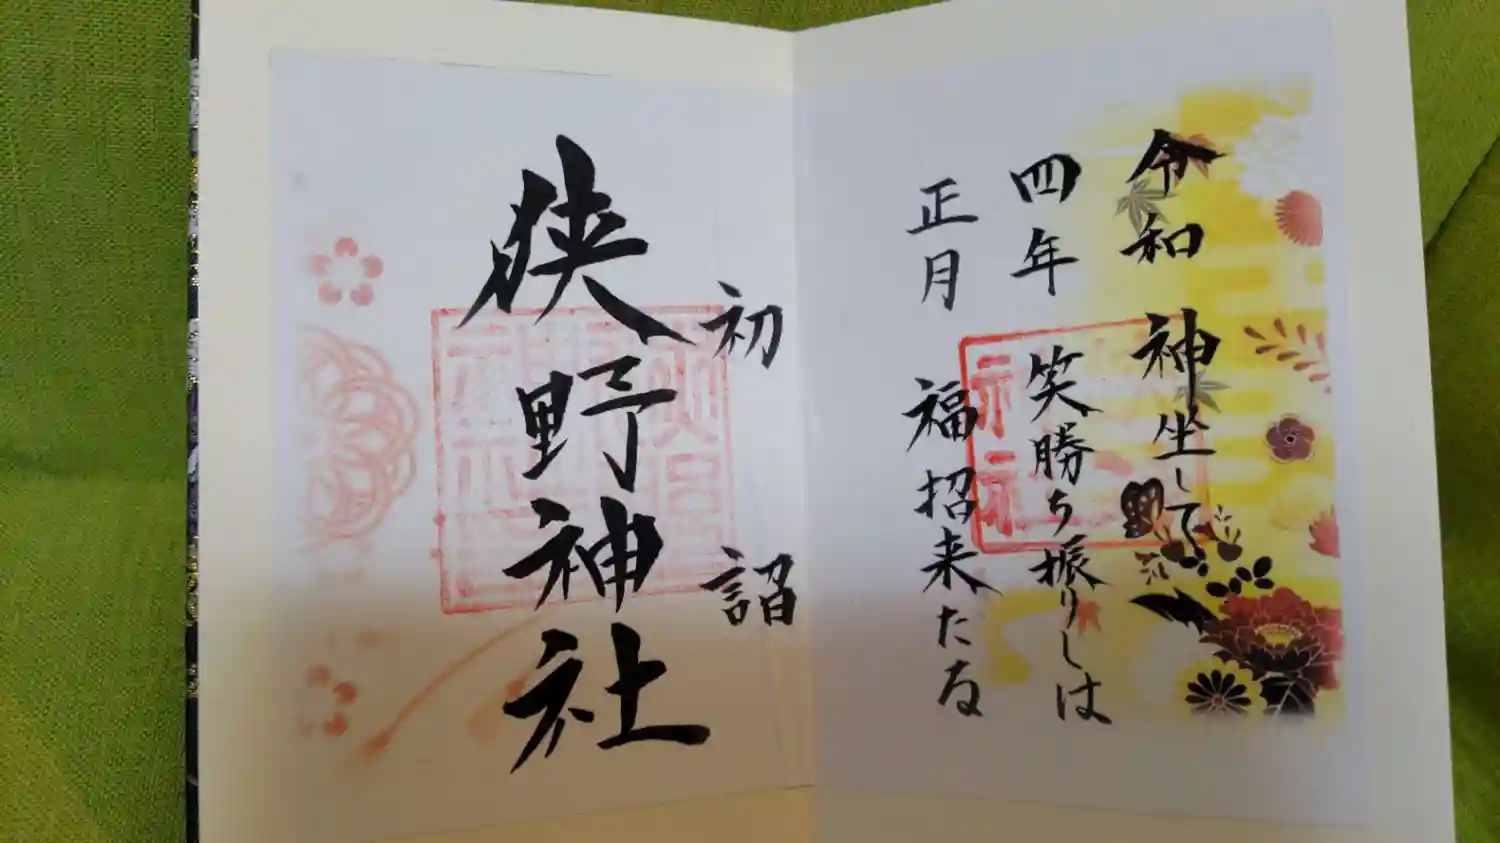 令和 神坐して
四年 笑勝ち振りしは
正月 福招来たる
初詔
狹野神社